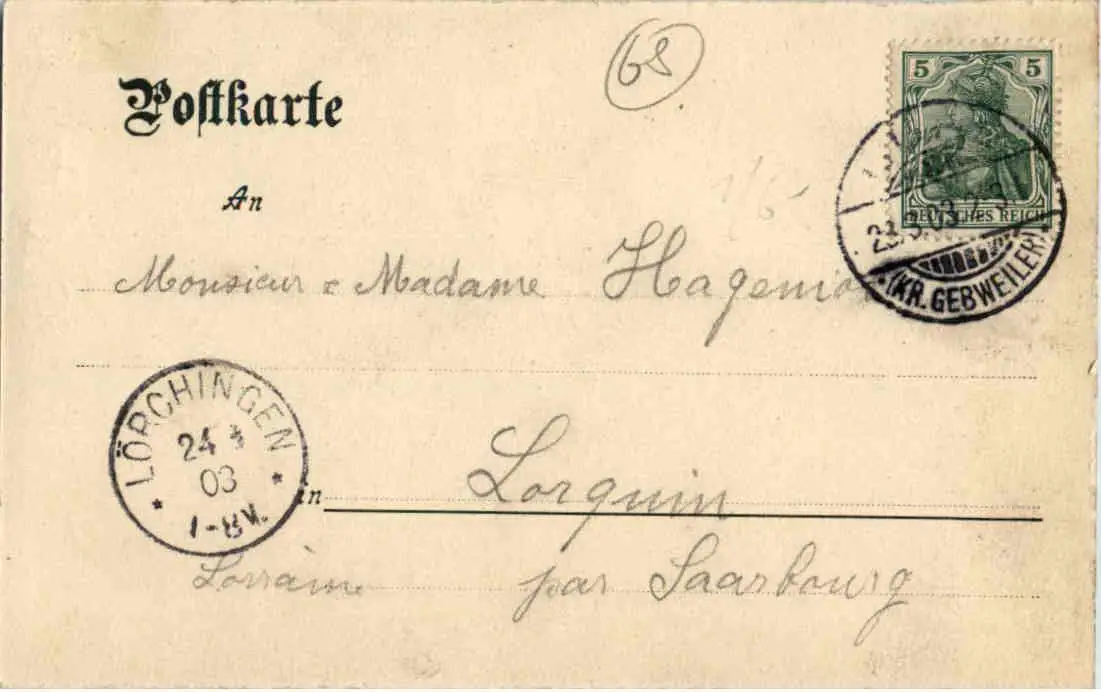 68
Postkarte
5 5
DEUTSCHES REICH
23.3.03.2-3
(KR. GEBWEILER)
An
Monsieur & Madame
LÖRCHINGEN
24 3
03
7-8 V.
in Lorquin
Lorraine par Saarbourg